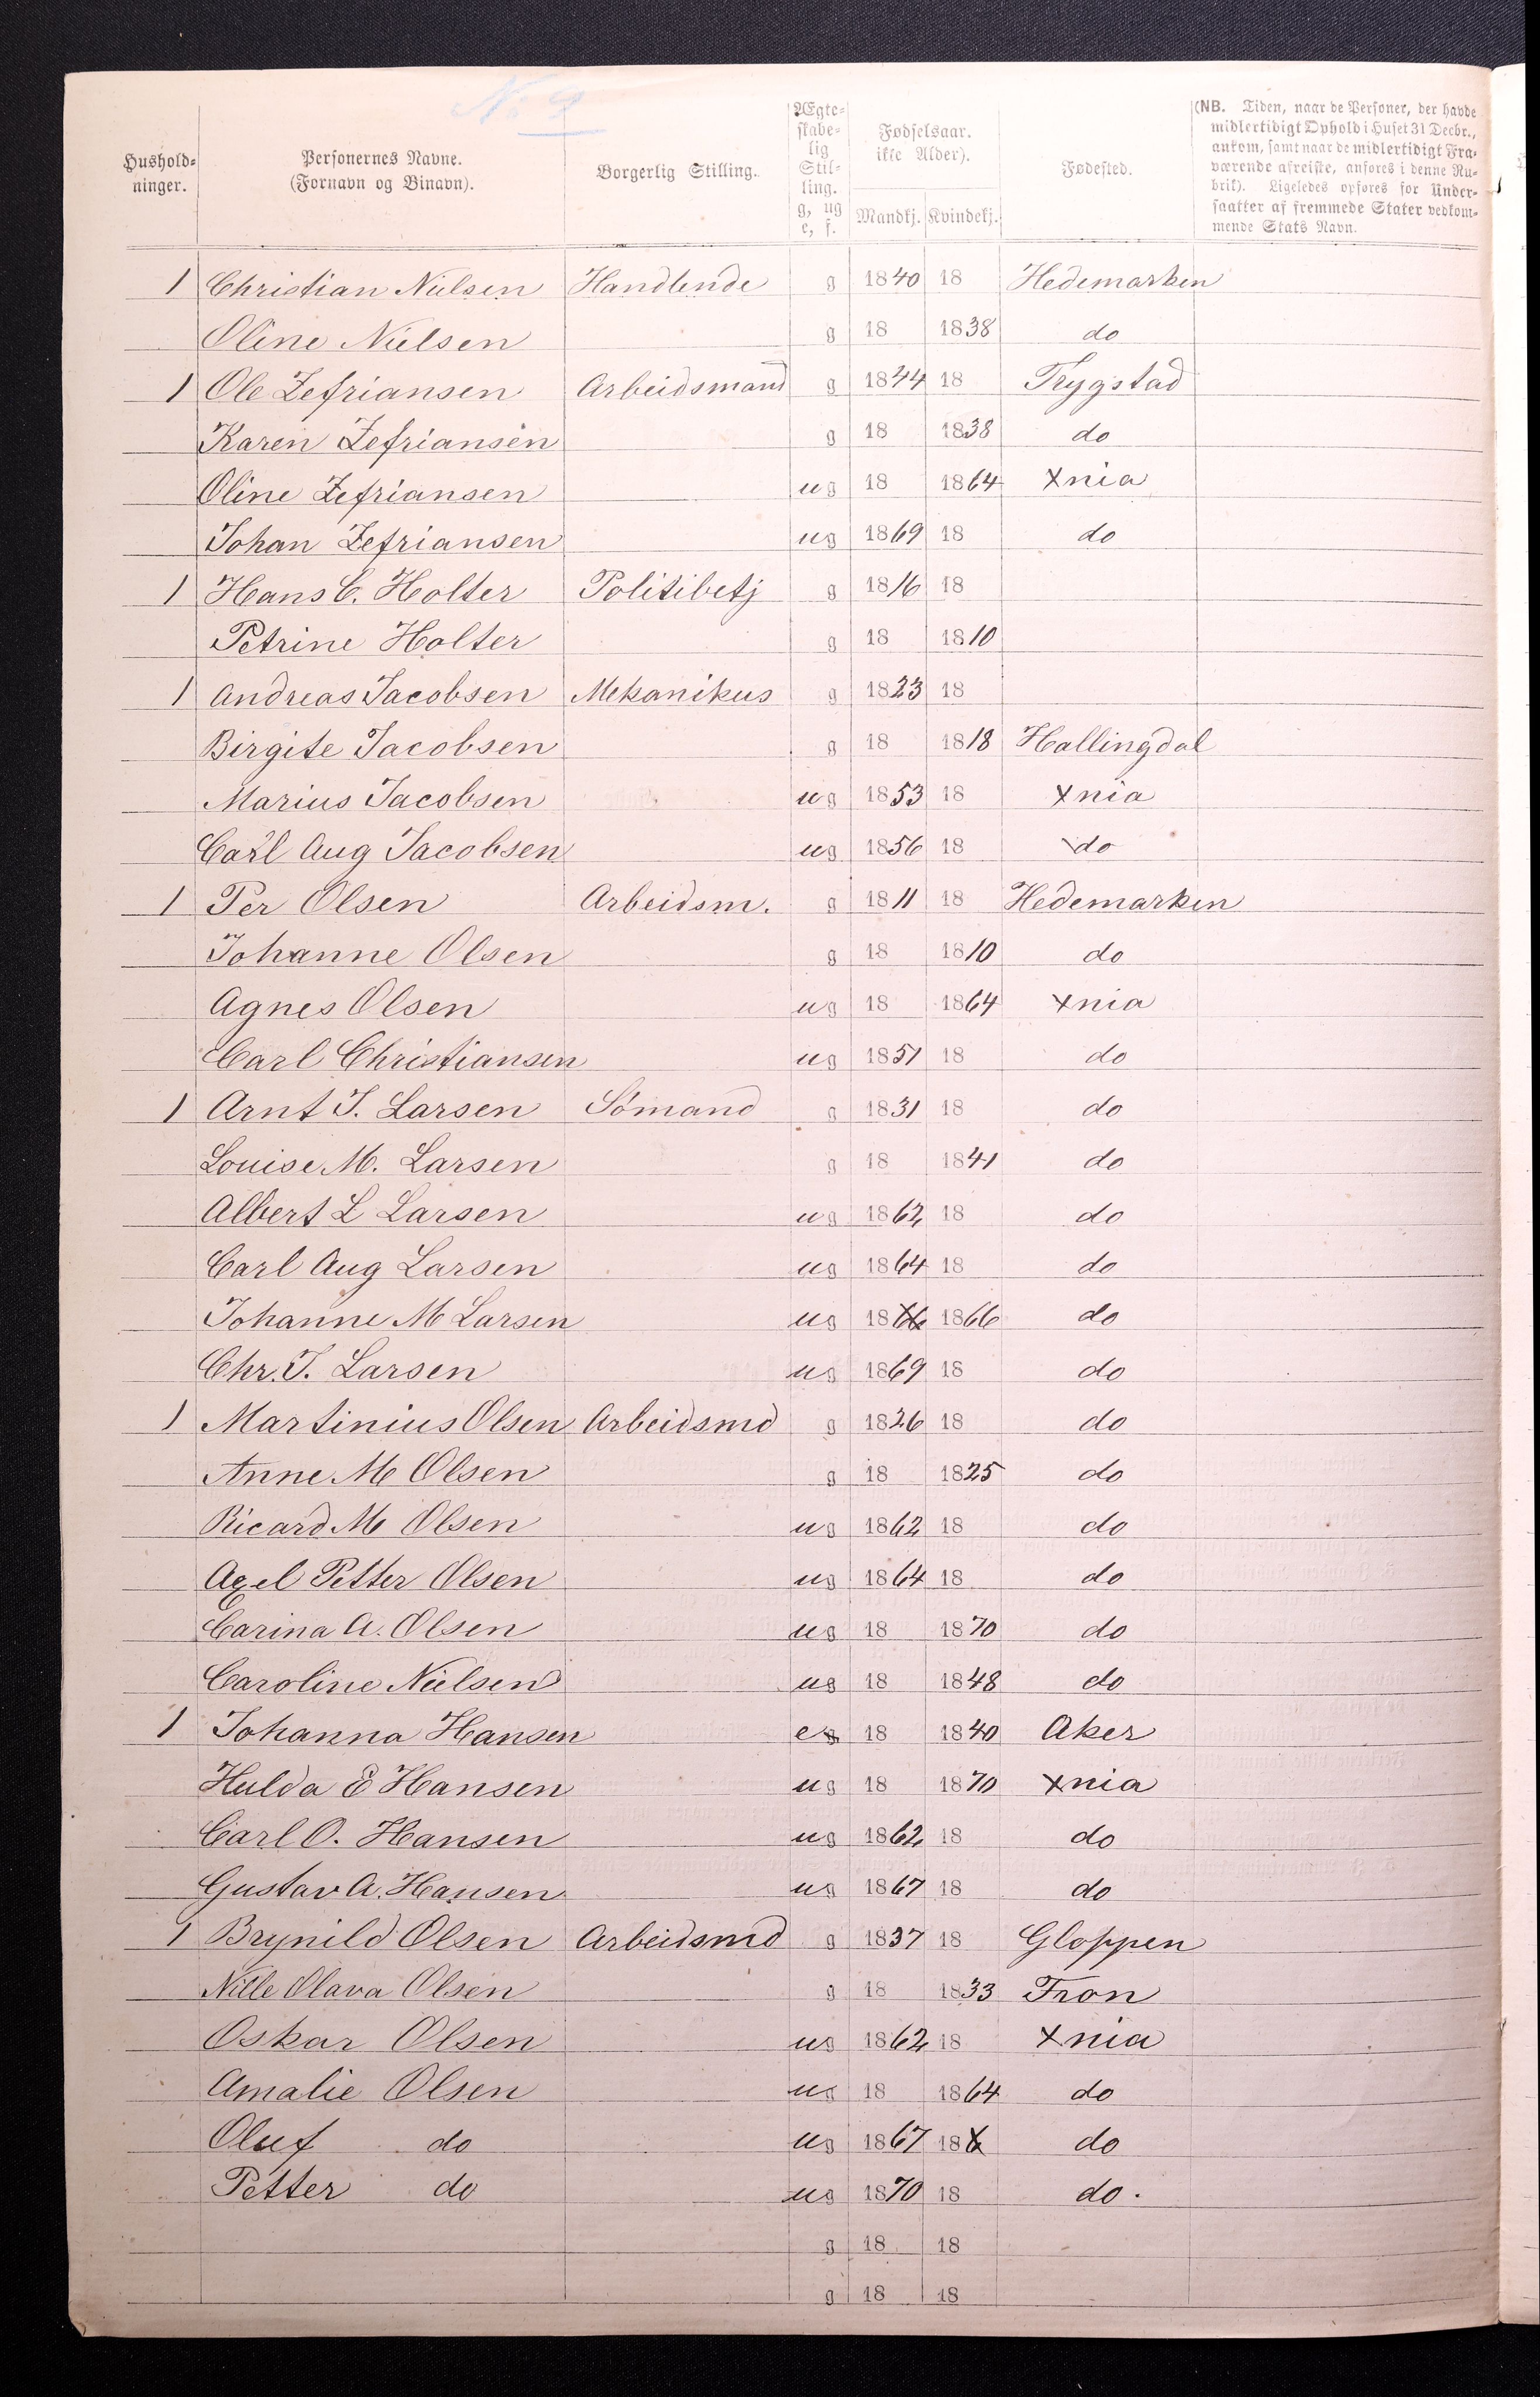 No 2
Hushold-
ninger.
Personernes Navne.
(Fornavn og Binavn).
Borgerlig Stilling.
Ægte-
skabe-
lig
Stil-
ling.
g, ug
e, f.
Fødselsaar.
ikke Alder).
Mandkj. Kvindekj.
Fødested.
(NB. Tiden, naar de Personer, der havde
midlertidigt Ophold i Huset 31 Decbr.,
ankom, samt naar de midlertidigt Fra-
værende afreiste, anføres i denne Ru-
brik). Ligeledes opføres for Under-
saatter af fremmede Stater vedkom-
mende Stats Navn.
1 Christian Nielsen Handlende g 1840 18 Hedemarken
Oline Nielsen g 18 1838 do
1 Ole Zefriansen Arbeidsmand g 1844 18 Trygstad
Karen Zefriansen g 18 1838 do
Oline Zefriansen ug 18 1864 Xnia
Johan Zefriansen ug 1869 18 do
1 Hans C. Holter Politibetj g 1816 18
Petrine Holter g 18 1810
1 Andreas Jacobsen Mekanikus g 1823 18
Birgite Jacobsen g 18 1818 Hallingdal
Marius Jacobsen ug 1853 18 Xnia
Carl Aug Jacobsen ug 1856 18 do
1 Per Olsen Arbeidsm. g 1811 18 Hedemarken
Johanne Olsen g 18 1810 do
Agnes Olsen ug 18 1864 Xnia
Carl Christiansen ug 1851 18 do
1 Arnt J. Larsen Sømand g 1831 18 do
Louise M. Larsen g 18 1841 do
Albert L Larsen ug 1862 18 do
Carl Aug Larsen ug 1864 18 do
Johanne M Larsen ug 18 1866 do
Chr. J. Larsen ug 1869 18 do
1 Martinius Olsen Arbeidsmd g 1826 18 do
Anne M Olsen g 18 1825 do
Ricard M Olsen ug 1862 18 do
Axel Petter Olsen ug 1864 18 do
Carina A. Olsen ug 18 1870 do
Caroline Nielsen ug 18 1848 do
1 Johanna Hansen e 18 1840 Aker
Hulda E Hansen ug 18 1870 Xnia
Carl O. Hansen ug 1862 18 do
Gustav A. Hansen ug 1867 18 do
1 Brynild Olsen Arbeidsmd g 1837 18 Gloppen
Nille Olava Olsen g 18 1833 Fron
Oskar Olsen ug 1862 18 Xnia
Amalie Olsen ug 18 1864 do
Oluf do ug 1867 18 do
Petter do ug 1870 18 do.
g 18 18
g 18 18